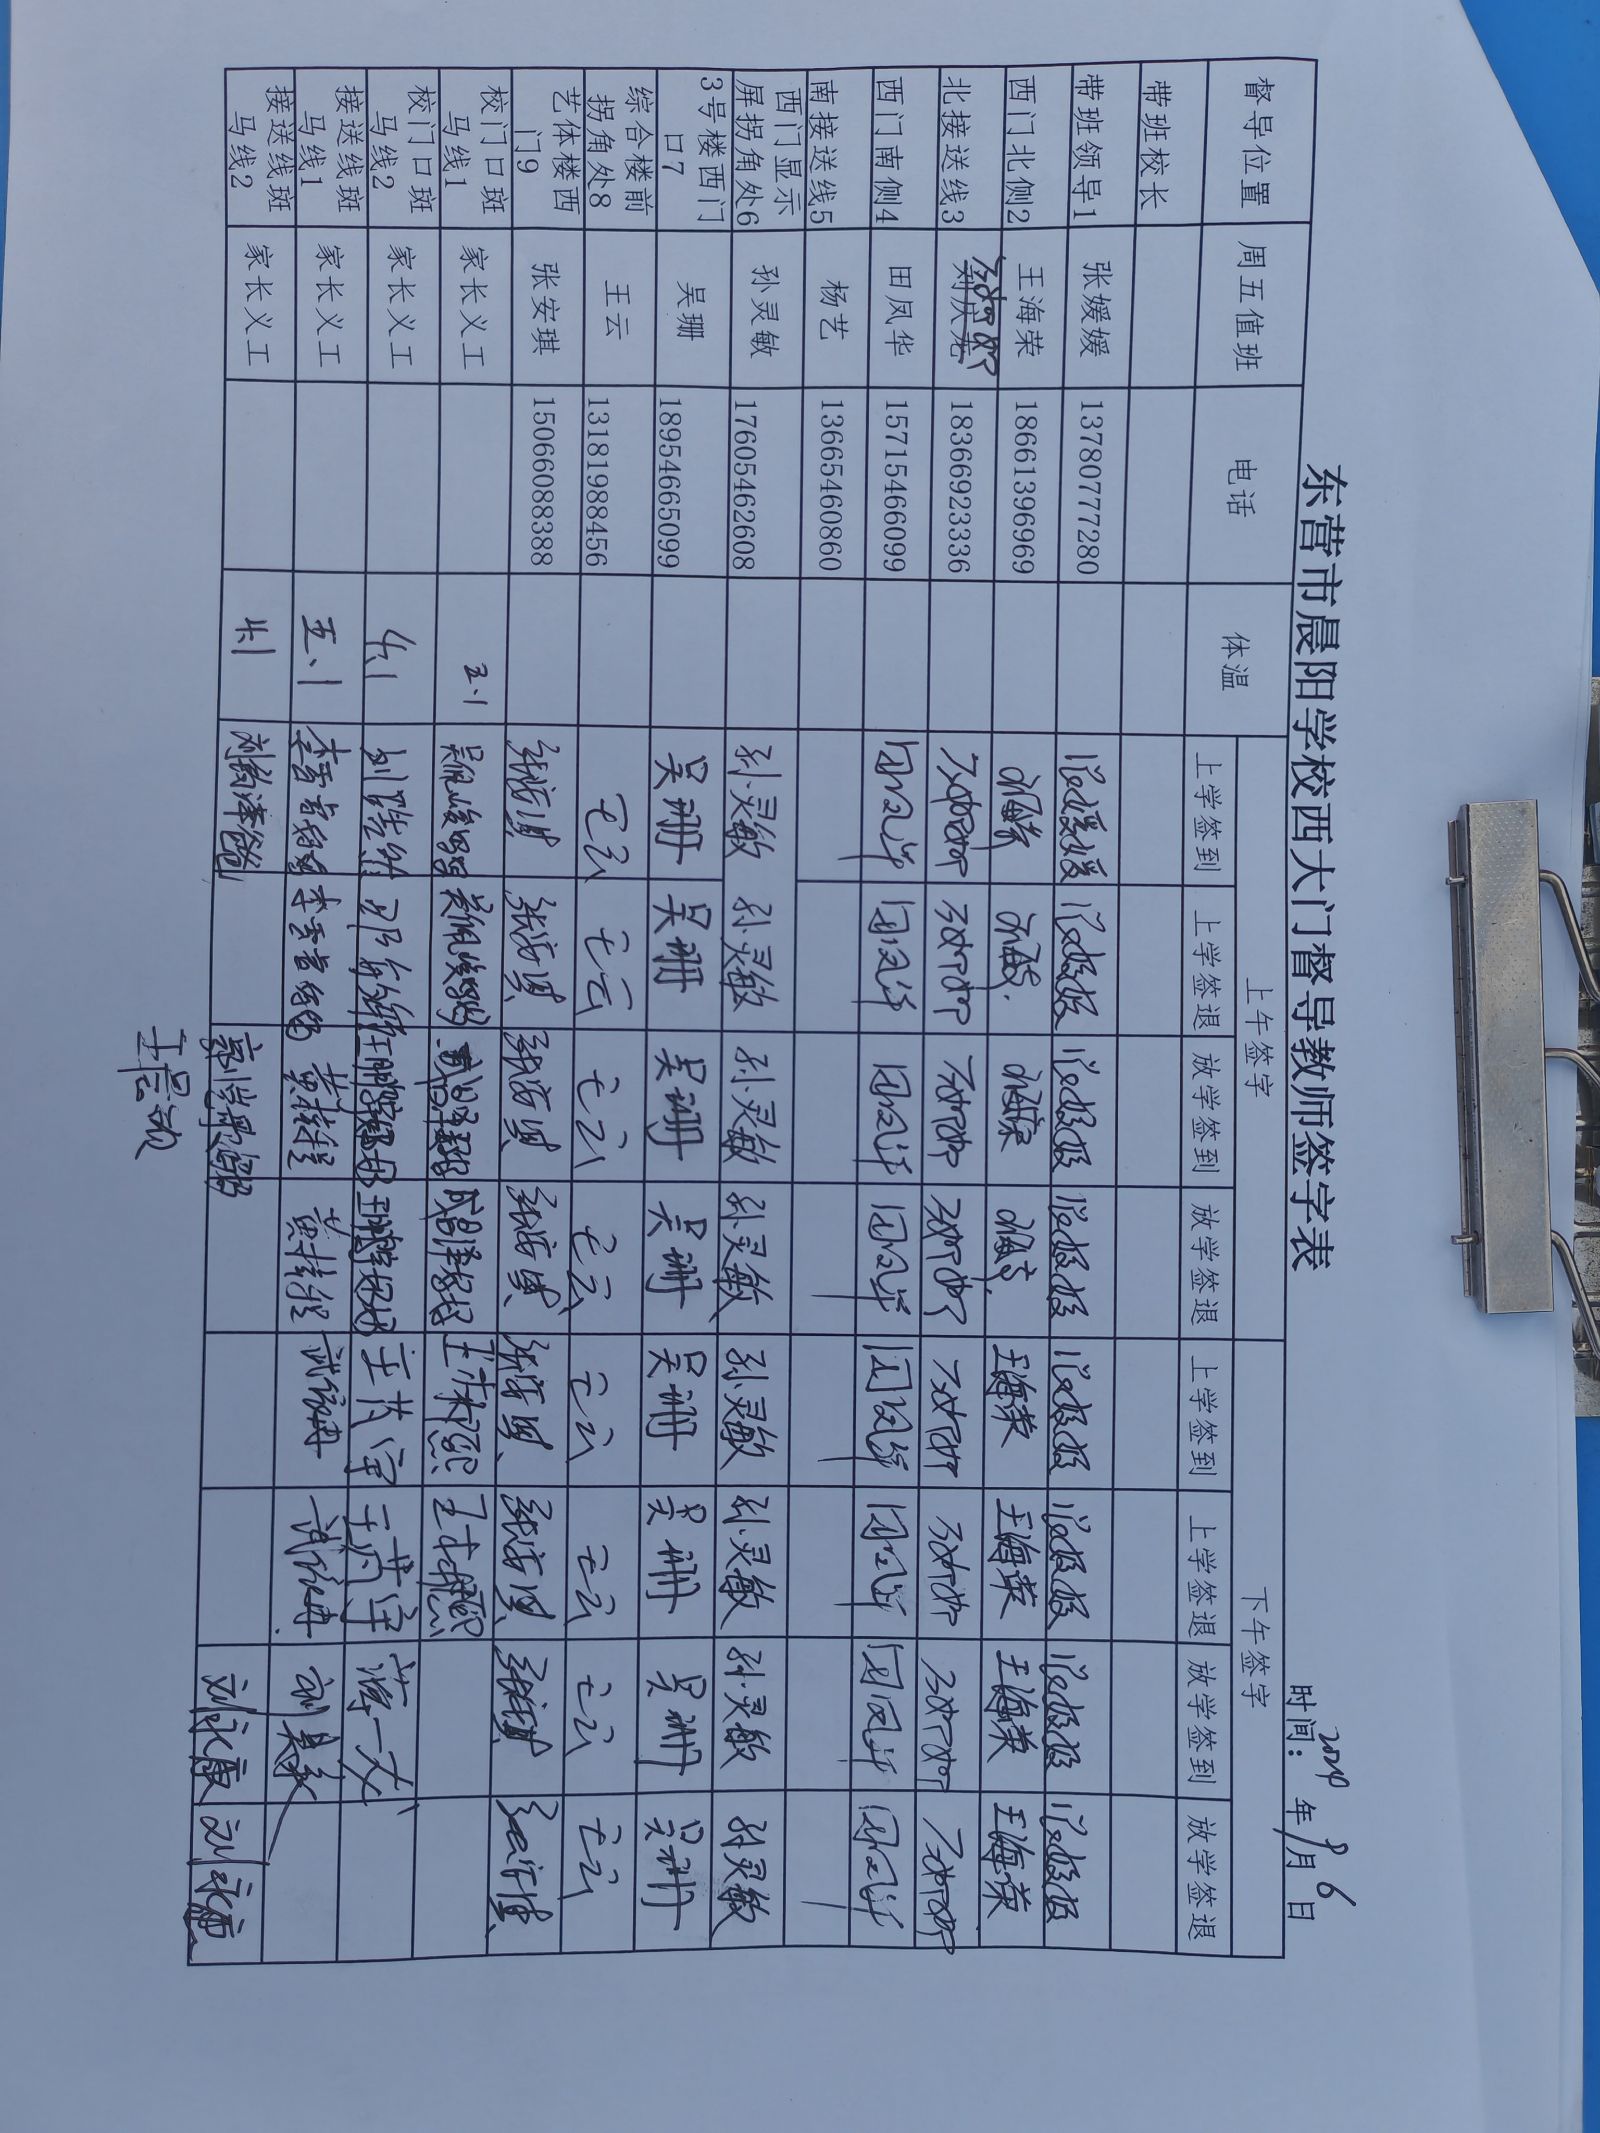 东营市晨阳学校西大门督导教师签字表
时间：2024年9月6日
督导位置 周五值班 电话 体温 上午签字 下午签字
上学签到 上学签退 放学签到 放学签退 上学签到 上学签退 放学签到 放学签退
带班校长
带班领导1 张媛媛 13780777280 张媛媛 张媛媛 张媛媛 张媛媛 张媛媛 张媛媛 张媛媛 张媛媛
西门北侧2 王海荣 18661396969 王海荣 王海荣 王海荣 王海荣
北接送线3 刘庆龙 18366923336
西门南侧4 田凤华 15715466099 田凤华 田凤华 田凤华 田凤华 田凤华 田凤华 田凤华 田凤华
南接送线5 杨艺 13665460860
西门显示
屏拐角处6 孙灵敏 17605462608 孙灵敏 孙灵敏 孙灵敏 孙灵敏 孙灵敏 孙灵敏 孙灵敏 孙灵敏
3号楼西门
口7 吴珊 18954665099 吴珊 吴珊 吴珊 吴珊 吴珊 吴珊 吴珊 吴珊
综合楼前
拐角处8 王云 13181988456 王云 王云 王云 王云 王云 王云 王云 王云
艺体楼西
门9 张安琪 15066088388 张安琪 张安琪 张安琪 张安琪 张安琪 张安琪 张安琪 张安琪
校门口斑
马线1 家长义工
校门口斑
马线2 家长义工
接送线斑
马线1 家长义工 五.1
接送线斑
马线2 家长义工 刘永康 刘永康